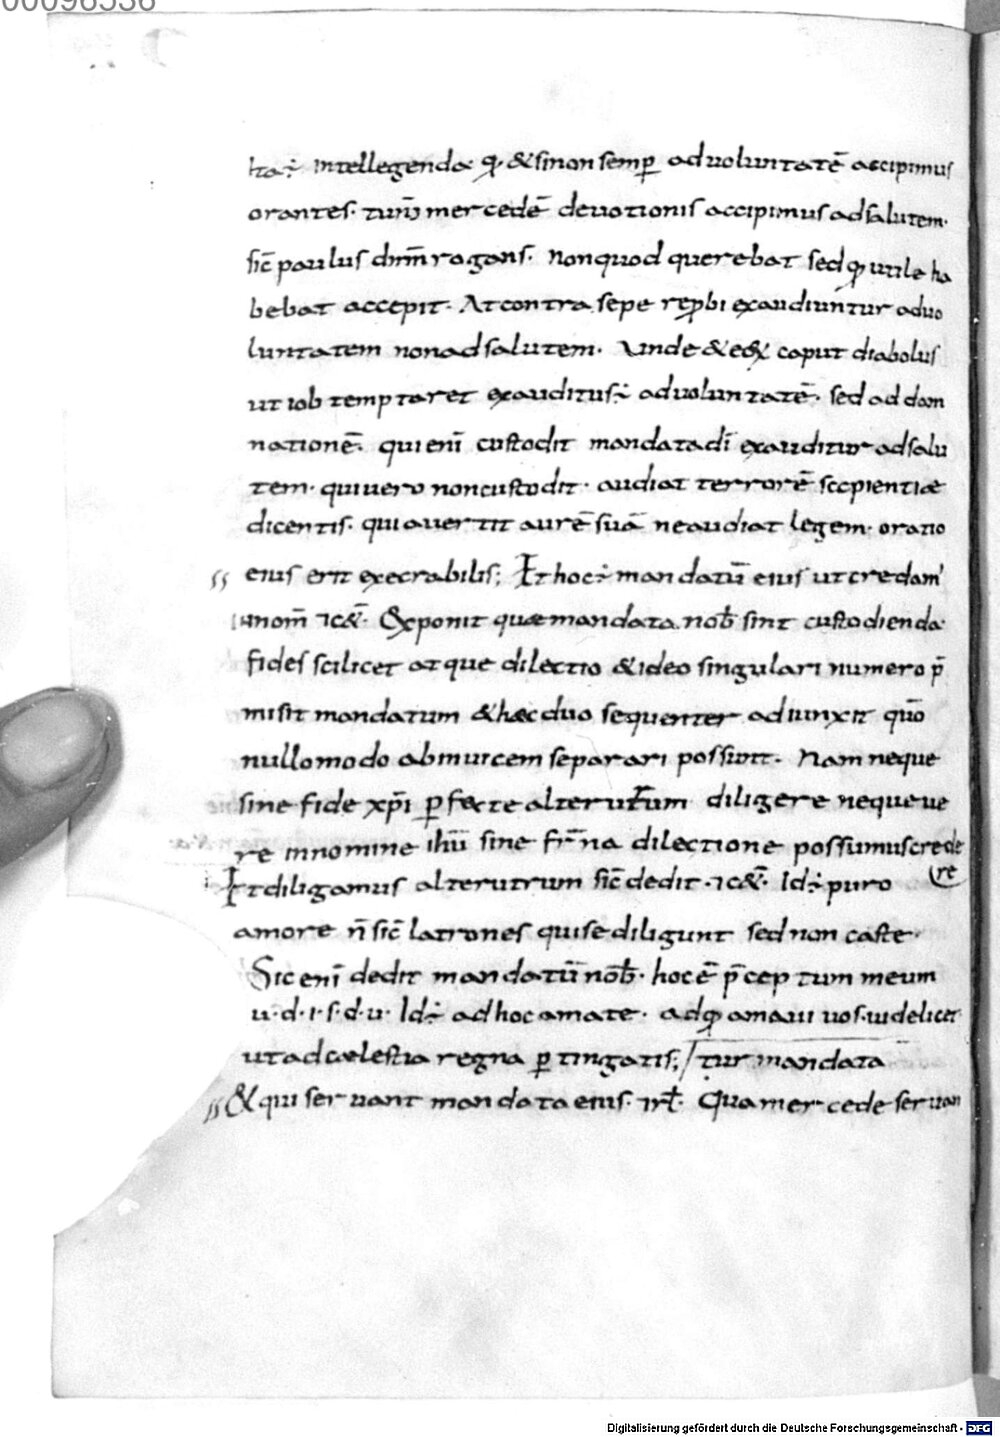 00096536
ita÷ intellegenda· q̨· &sinon semꝑ aduoluntatē accipimus
orantes· tuṁ mercedē deuotionis accipimus adsalutem·
sic̄ paulus dnm̄ rogans· nonquod querebat sed q̨ utile ha
bebat accepit· At contra sepe repꝓbi exaudiuntur aduo
luntatem nonadsalutem· Unde & eqͅ caput diabolus
ut iob temptaret exauditus÷ aduoluntatē· sed ad dam
nationē· qui eni̅ custodit mandata di̅ exauditur adsalu
tem· quiuero noncustodit· audiat terrorē sacpientiæ
dicentis· qui auertit aurē suā ne audiat legem· oratio
eius erit execrabilis; Et hoc÷ mandatū eius ut credam᾽
innom̄ ⁊c&̄· Exponit quæ mandata nob̄ sint custodienda·
fides scilicet atque dilectio &ideo singulari numero p̄
misit mandatum &hæc duo sequenter adiunxit quō
nullomodo abinuicem separari possunt· Nam neque
sine fide xp̄i ꝑfecte alterutrum diligere neque ue
re innomine ihū sine fr̄na dilectione possumus crede
Et diligamus alterutrum sic̄ dedit· ⁊c&̄· Id÷ puro re
amore n̄ sic̄ latrones qui se diligunt sed non caste·
Sic eni̅ dedit mandatū nob̄· hoc ē p̄ceptum meum
u·d·i·s·d·u· Id÷ ad hoc amate· ad q̨ amaui uos· uidelicet
ut ad cælestia regna ꝑtingatis; / tur mandata
& qui seruant mandata eius· ⁊rł· Qua mercede seruan
Digitalisierung gefördert durch die Deutsche Forschungsgemeinschaft - DFG